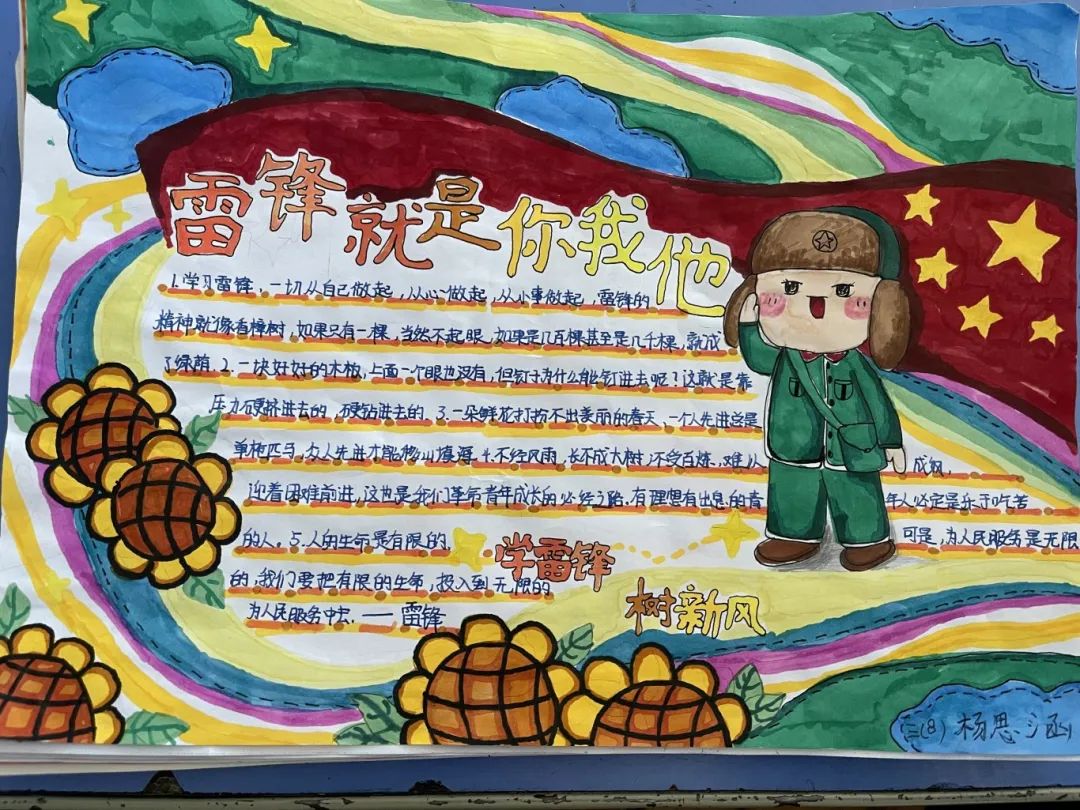 雷锋就是你我他
1.学习雷锋,一切从自己做起,从心做起,从小事做起,雷锋的
精神就像香樟树,如果只有一棵,当然不起眼,如果是几百棵甚至是几千棵,就成
了绿荫.2.一块好好的木板,上面一个眼也没有,但钉子为什么能钉进去呢?这就是靠
压力硬挤进去的,硬钻进去的.3.一朵鲜花打扮不出美丽的春天,一个人先进总是
单枪匹马,众人先进才能移山填海.4.不经风雨,长不成大树;不受百炼,难以成钢.
迎着困难前进,这也是我们革命青年成长的必经之路.有理想有出息的青年人必定是乐于吃苦
的人。5.人的生命是有限的,可是,为人民服务是无限
的,我们要把有限的生命,投入到无限的
为人民服务中去.——雷锋
学雷锋
树新风
二(8) 杨思涵